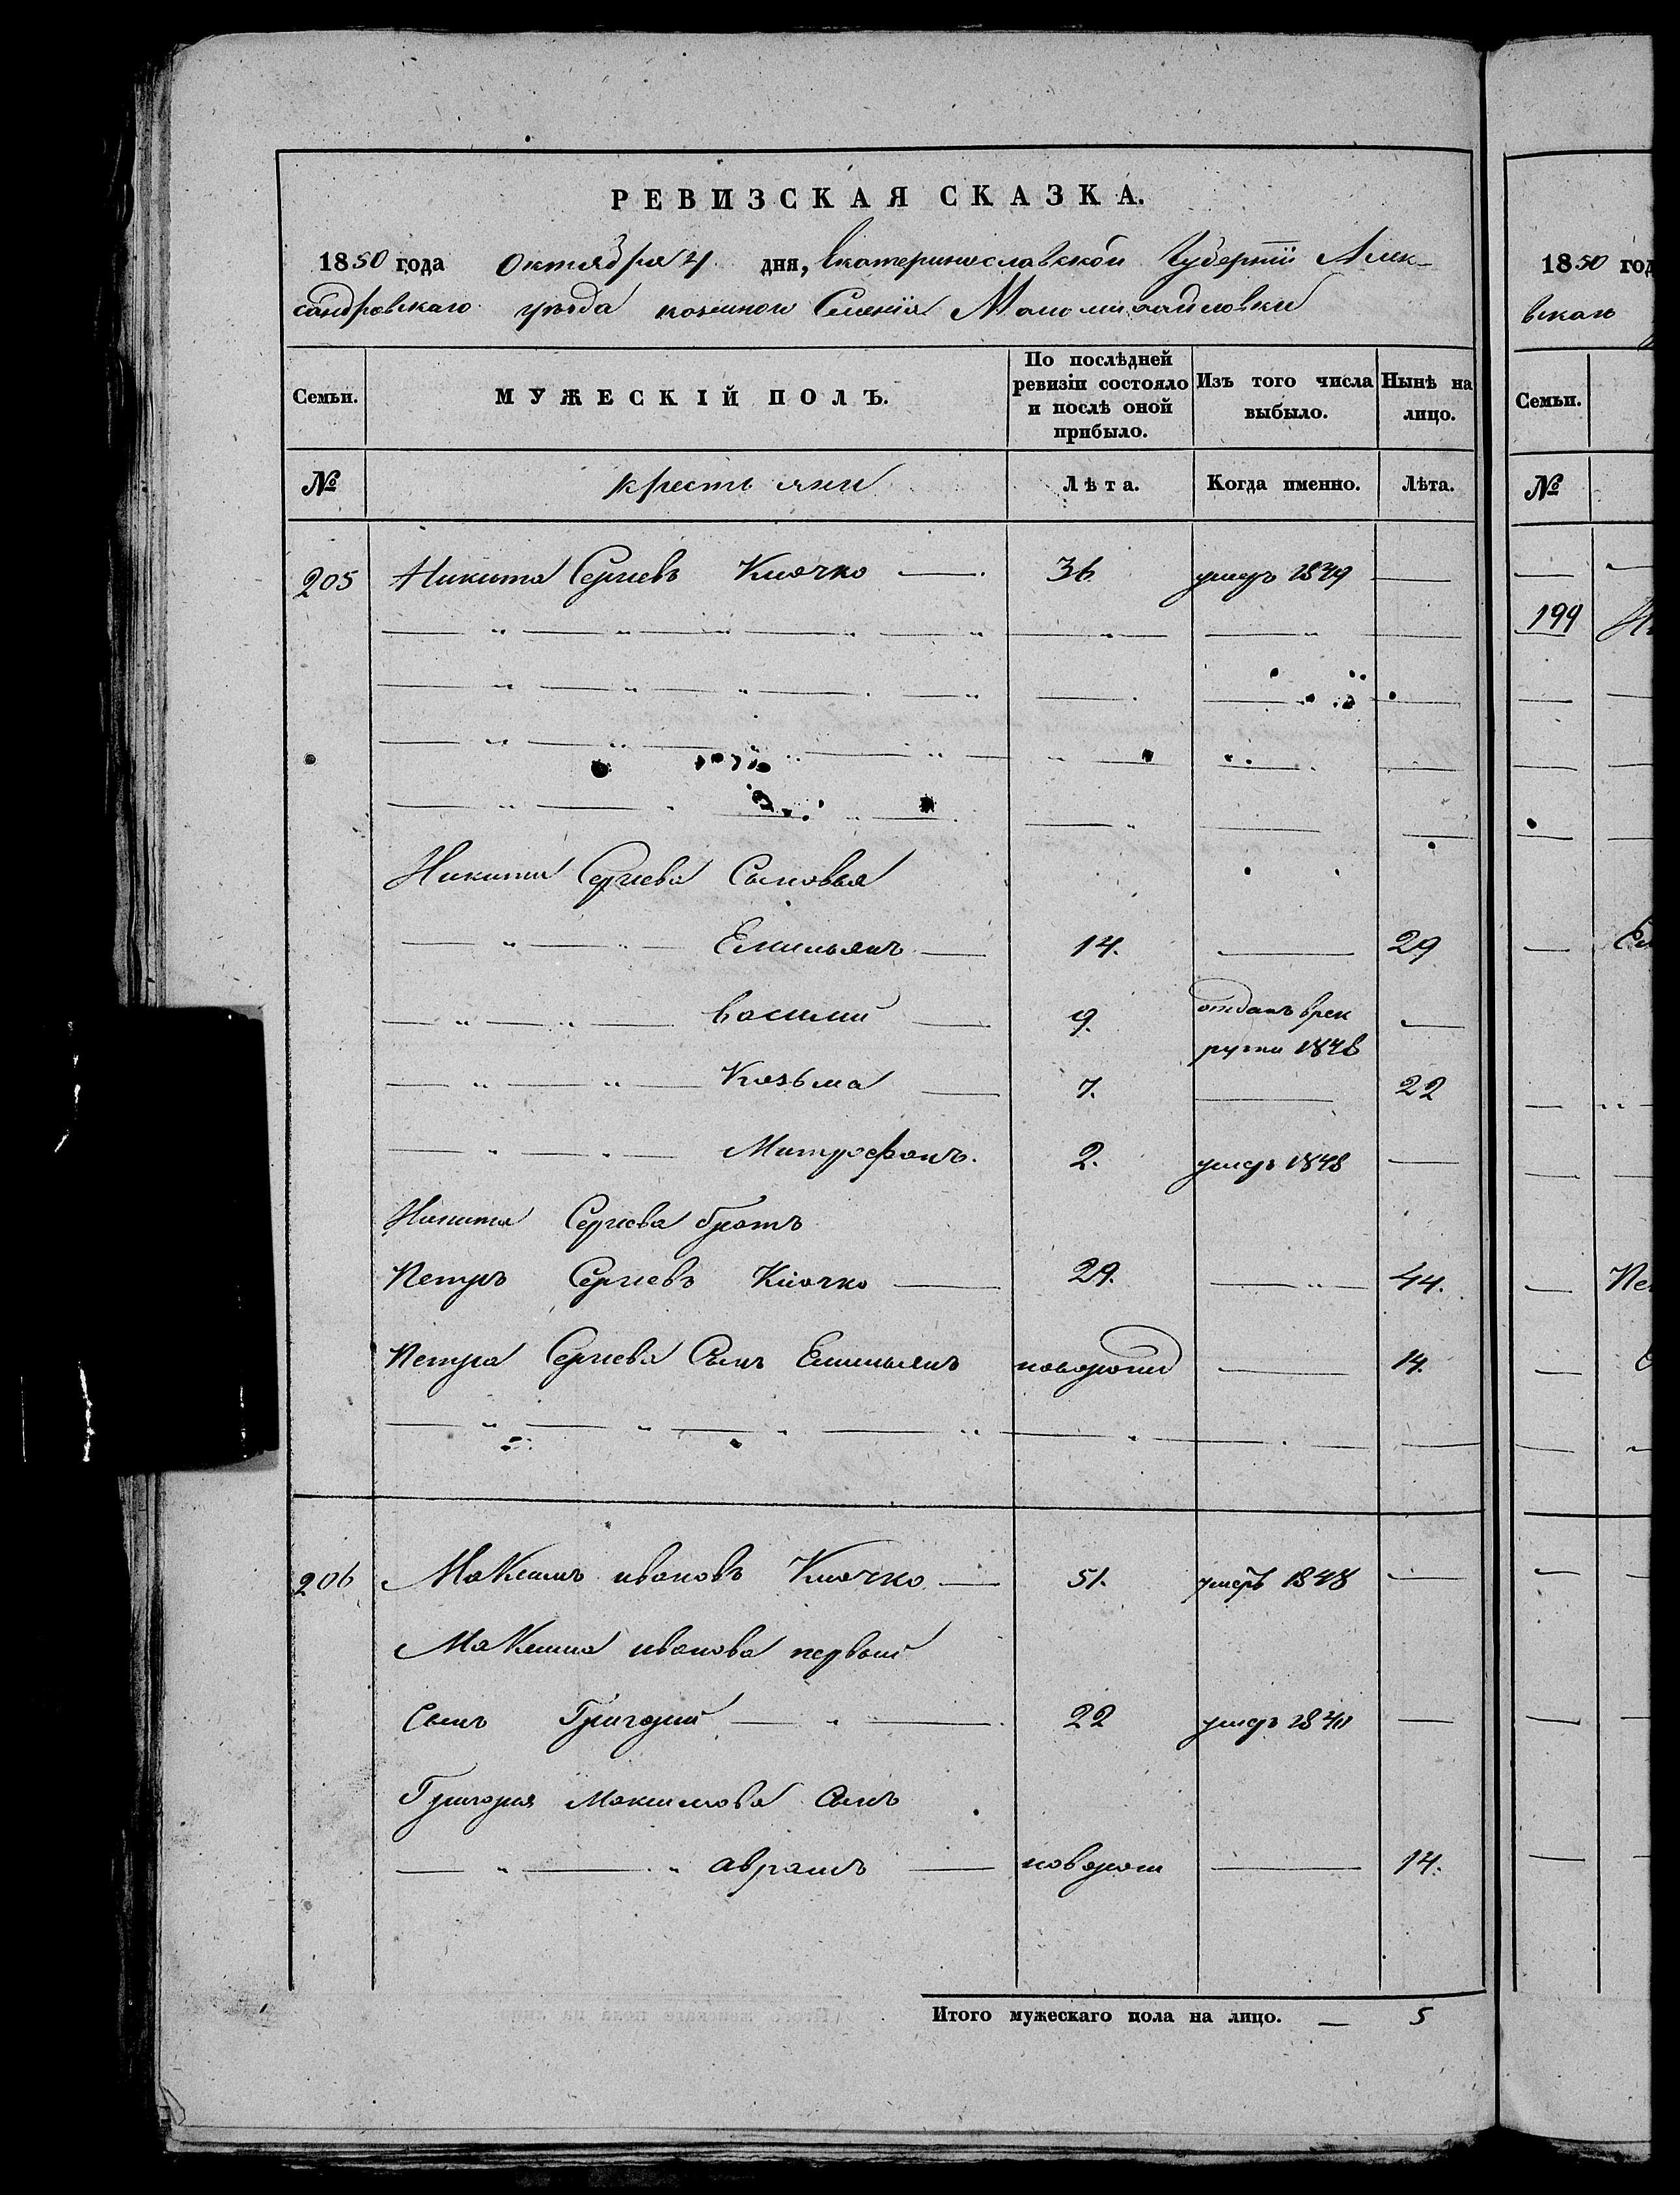 РЕВИЗСКАЯ СКАЗКА.
1850 года Октября 4 дня, Екатеринославской Губернии Алек-
сандровскаго уѣзда казенной Селенія Маломихайловки
Семьи. МУЖЕСКІЙ ПОЛЪ. По послѣдней ревизіи состояло и послѣ оной прибыло. Изъ того числа выбыло. Нынѣ на лицо.
№ крестьяни Лѣта. Когда именно. Лѣта.
205 Никита Сергіевъ Клочко 36 умеръ 1839
Никиты Сергіева Сыновья
Емильянъ 14. 29
Василий 9. отданъ в рек
руты 1848
Козьма 7. 22
Митрофанъ. 2. умеръ 1848
Никиты Сергіева братъ
Петръ Сергіевъ Клочко 29. 44.
Петра Сергіева Сынъ Емильянъ новорожд 14.
206 Максимъ ивановъ Клочко 51. умеръ 1848
Максима иванова первый
Сынъ Григорий 22 умеръ 1840
Григория Максимова Сынъ
аврамъ новорож 14.
Итого мужескаго пола на лицо. 5
1850 год
вскаго
Семьи.
№
199